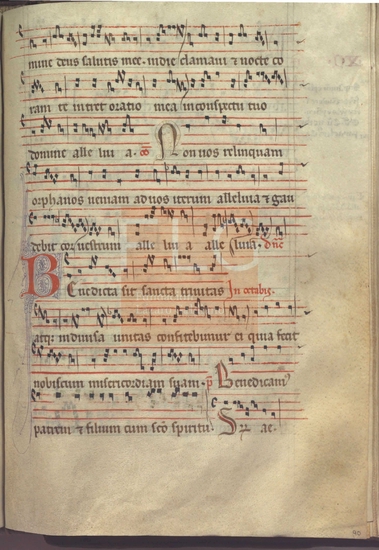 mine deus salutis mee. in die clamaui ⁊ nocte co
ram te intret oratio mea inconspectu tuo
domine alle lui a. Non uos relinquam
orphanos ueniam ad uos iterum alleluia ⁊ gau
debit cor uestrum alle lui a alle luia.
Enedicta sit sancta trinitas In octabis.
B
atqꝫ indiuisa unitas confitebimur ei quia fecit
nobiscum misericordiam suam. p̄ Benedicam᷒
patrem ⁊ filium cum sc̄o spiritu. ae.
90